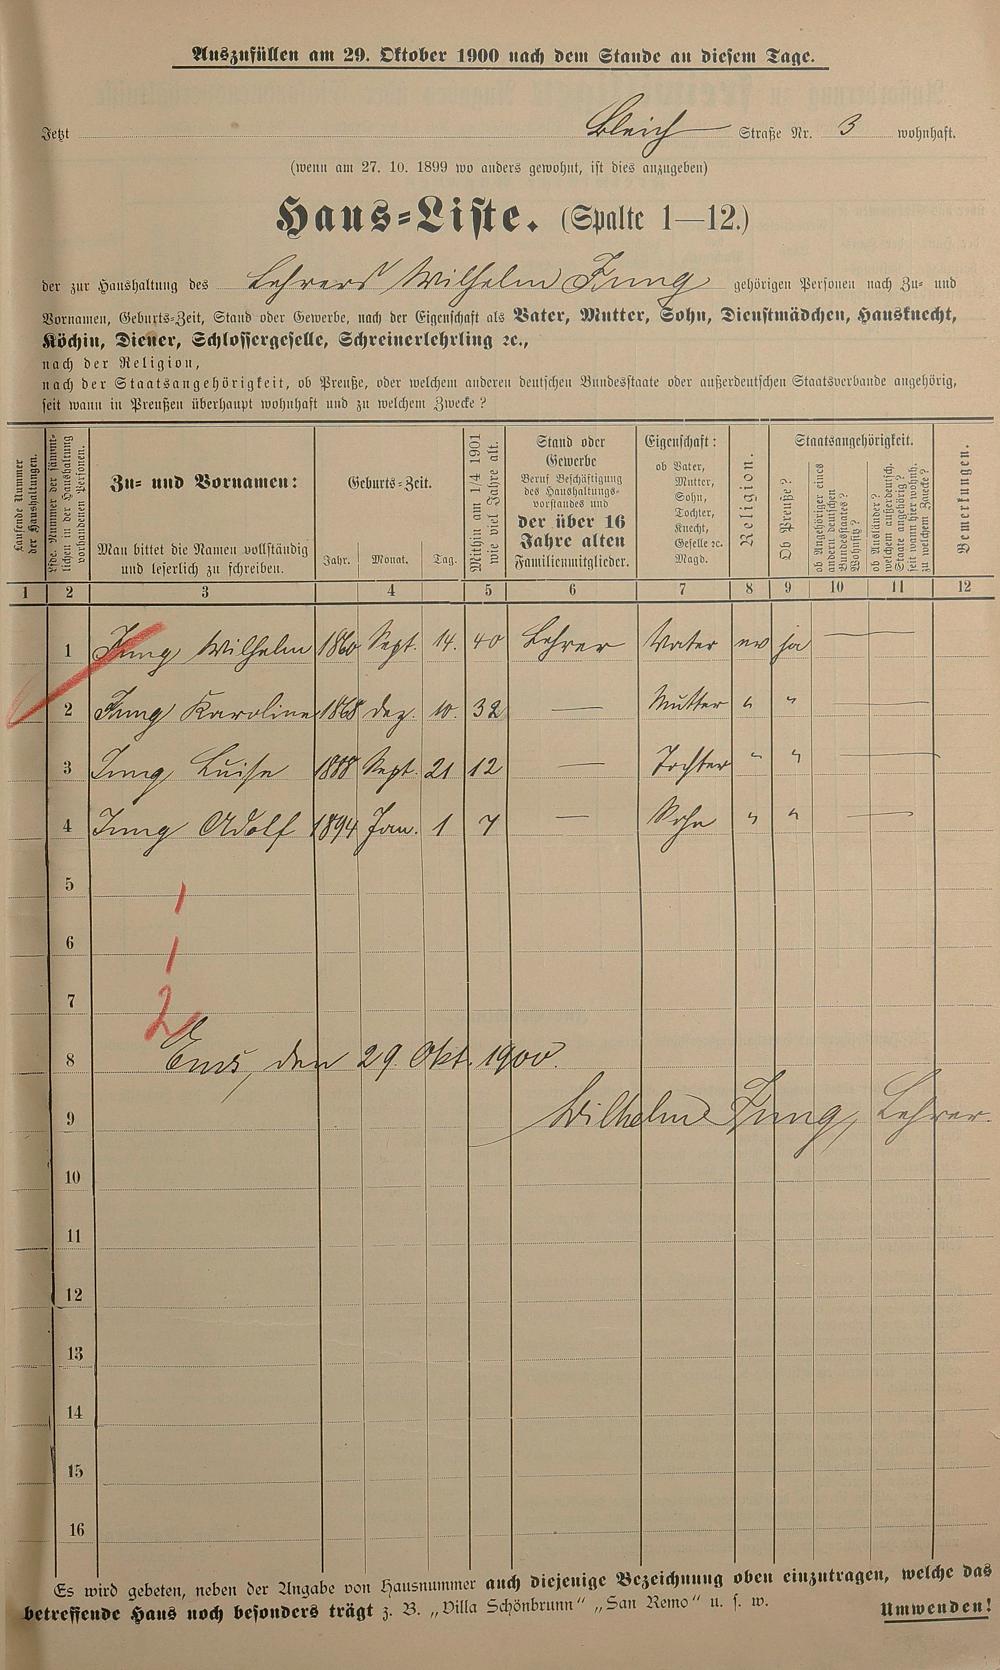 Auszufüllen am 29. Oktober 1900 nach dem Stande an diesem Tage.
Jetzt Bleich Straße Nr. 3 wohnhaft.
(wenn am 27. 10. 1899 wo anders gewohnt, ist dies anzugeben)
Haus-Liste. (Spalte 1—12.)
der zur Haushaltung des Lehrers Wilhelm Jung gehörigen Personen nach Zu- und
Vornamen, Geburts-Zeit, Stand oder Gewerbe, nach der Eigenschaft als Vater, Mutter, Sohn, Dienstmädchen, Hausknecht,
Köchin, Diener, Schlossergeselle, Schreinerlehrling ꝛc.,
nach der Religion,
nach der Staatsangehörigkeit, ob Preuße, oder welchem anderen deutschen Bundesstaate oder außerdeutschen Staatsverbande angehörig,
seit wann in Preußen überhaupt wohnhaft und zu welchem Zwecke?
Laufende Nummer
der Haushaltungen.
Lfde. Nummer der sämmt-
lichen in der Haushaltung
vorhandenen Personen.
Zu- und Vornamen:
Man bittet die Namen vollständig
und leserlich zu schreiben.
Geburts-Zeit.
Jahr. Monat. Tag.
Mithin am 1/4 1901
wie viel Jahre alt.
Stand oder
Gewerbe
Beruf Beschäftigung
des Haushaltungs-
vorstandes und
der über 16
Jahre alten
Familienmitglieder.
Eigenschaft:
ob Vater,
Mutter,
Sohn,
Tochter,
Knecht,
Geselle ꝛc.
Magd.
Religion.
Staatsangehörigkeit.
Ob Preuße?
ob Angehöriger eines
andern deutschen
Bundesstaates?
Wohnsitz?
ob Ausländer?
welchem außerdeutsch.
Staate angehörig?
seit wann hier wohnh.
zu welchem Zwecke?
Bemerkungen.
1 2 3 4 5 6 7 8 9 10 11 12
1 Jung Wilhelm 1860 Sept. 14. 40 Lehrer Vater ev ja —
2 Jung Karoline 1868 Dez. 10. 32 — Mutter " " —
3 Jung Luise 1888 Sept. 21 12 — Tochter " " —
4 Jung Adolf 1894 Jan. 1 7 — Sohn " " —
5 1
6 1
7 2
8 Ems, den 29. Okt. 1900.
9 Wilhelm Jung, Lehrer.
10
11
12
13
14
15
16
Es wird gebeten, neben der Angabe von Hausnummer auch diejenige Bezeichnung oben einzutragen, welche das
betreffende Haus noch besonders trägt z. B. „Villa Schönbrunn" „San Remo" u. s. w.
Umwenden!